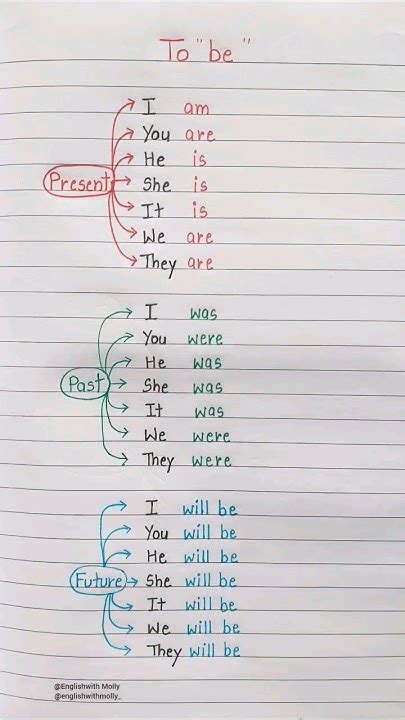 To "be"
I am
You are
He is
Present She is
It is
We are
They are
I was
You were
He was
Past She was
It was
We were
They were
I will be
You will be
He will be
Future She will be
It will be
We will be
They will be
@Englishwith Molly
@englishwithmolly_